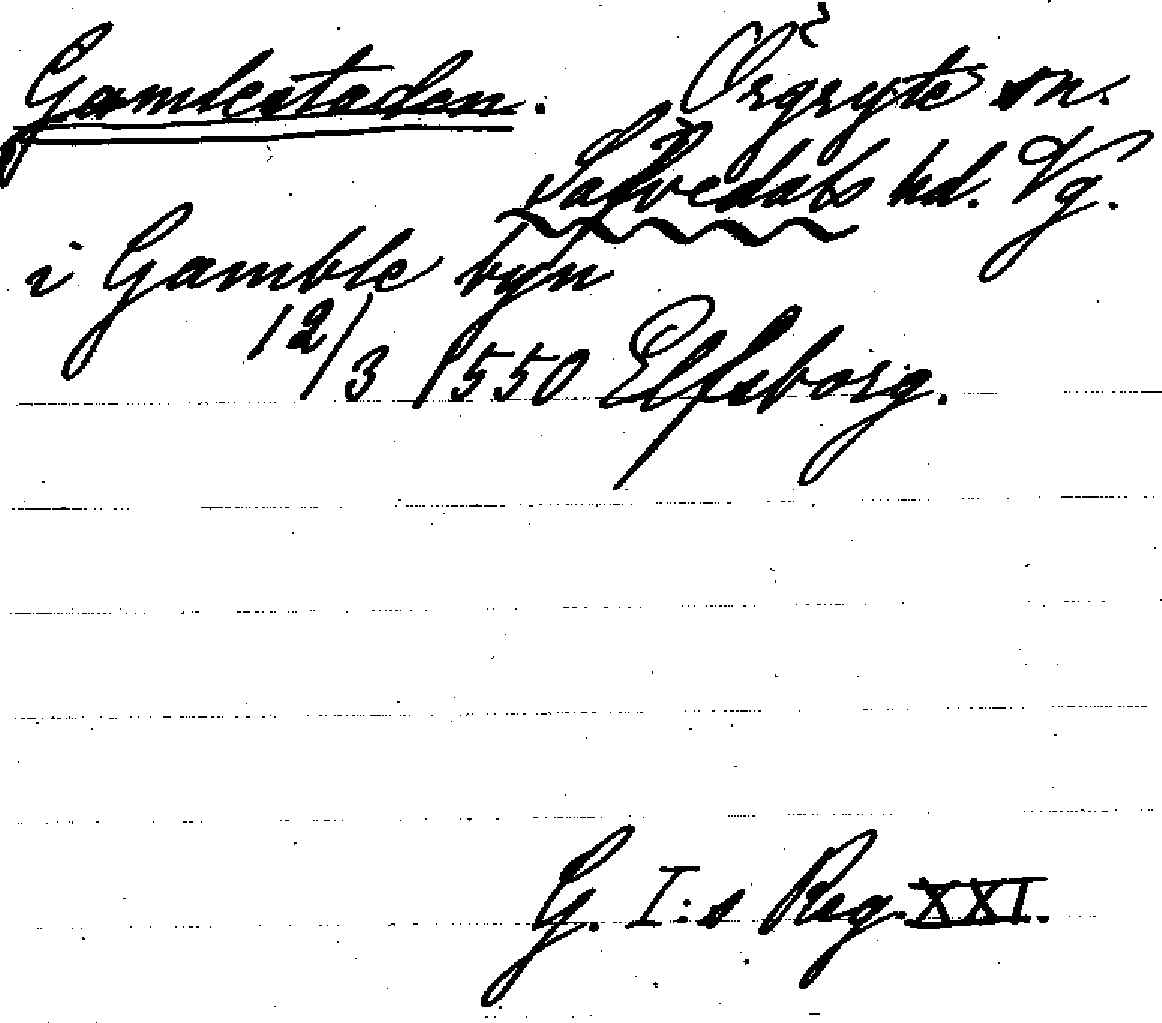 Gamlestaden. Örgryte sn.
Säfvedals hd. Vg.
i Gamble byn
12/3 1550 Elfsborg.
G. I:s Reg. XXI.